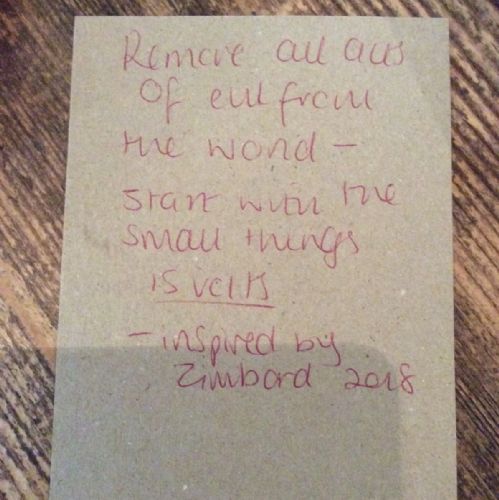 Remove all acts
of evil from
the world -
start with the
small things
15 volts
- inspired by
Zimbard 2018